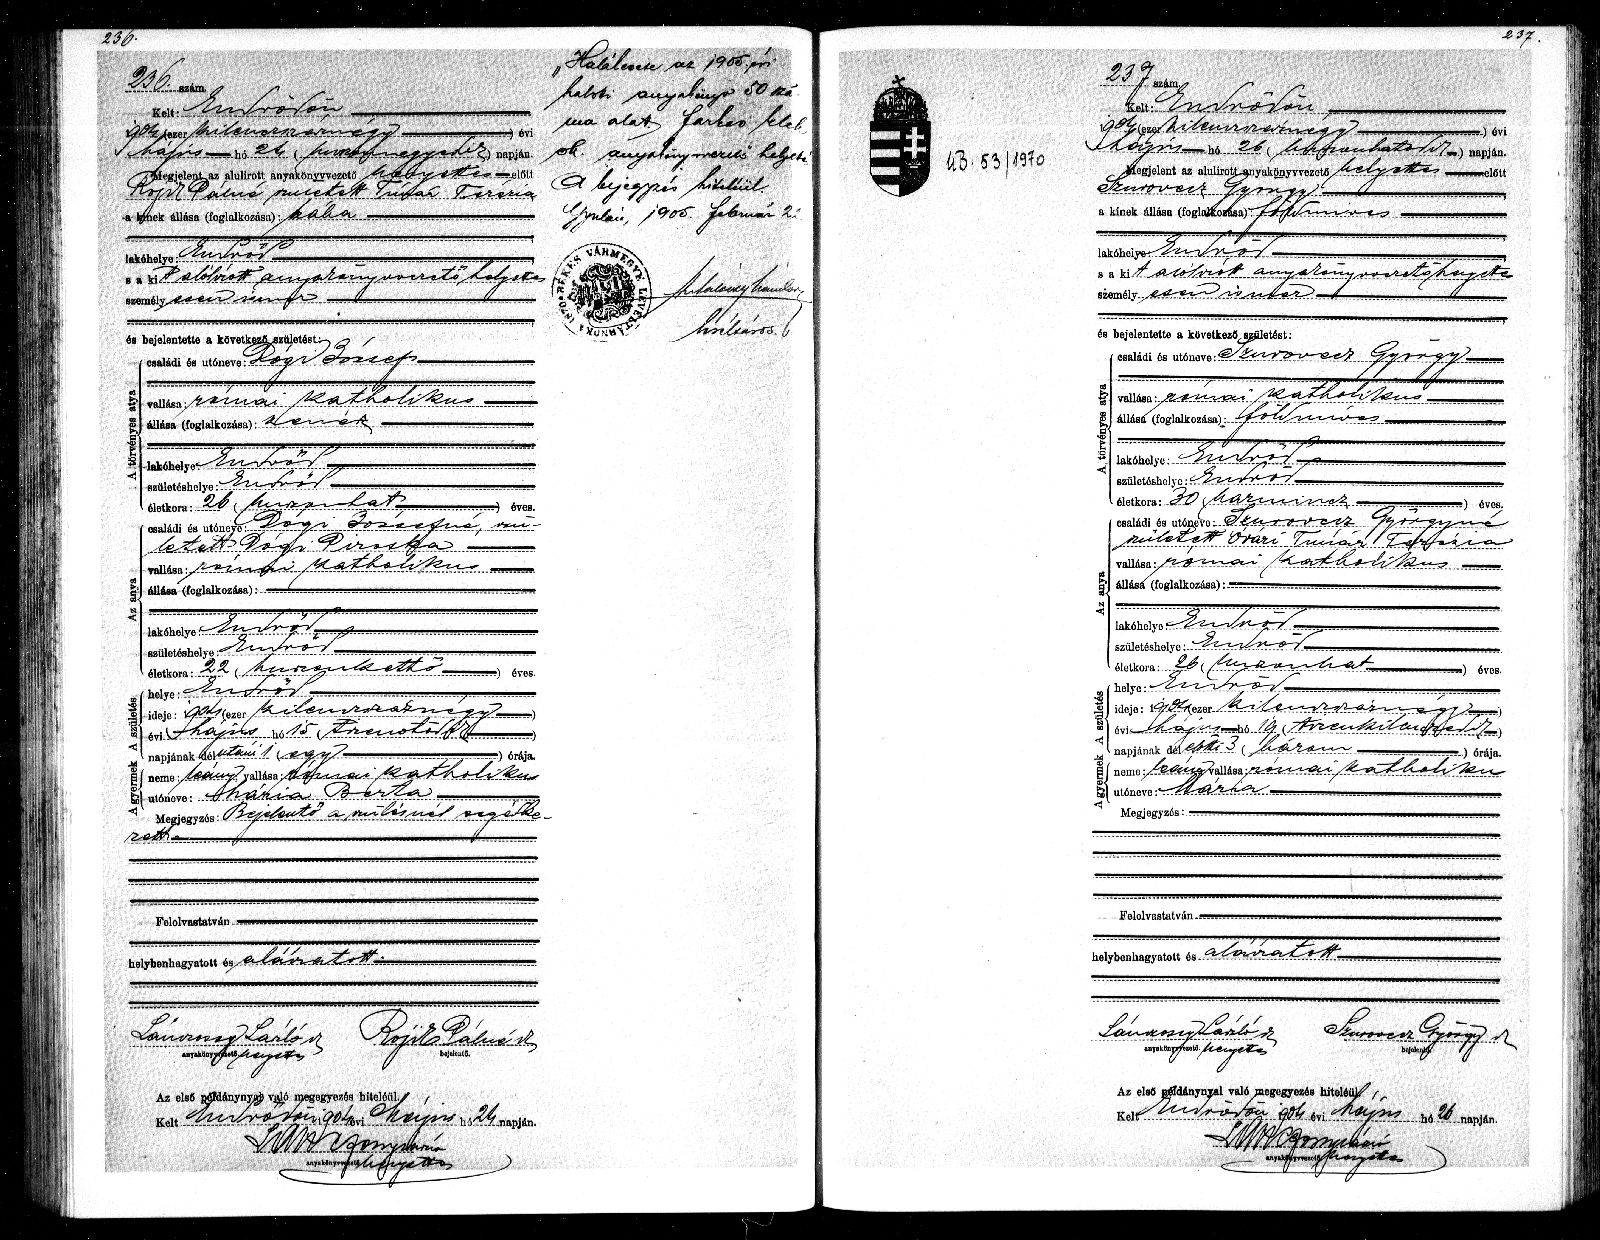 236.
236. szám
Kelt: Endrődön
1904 (ezer kilenczszáznégy) évi
Május hó 24 (huszonnegyedik) napján.
Megjelent az alulirott anyakönyvvezető helyettes előtt
Rojik Pálné született Tímár Terézia
a kinek állása (foglalkozása): bába
lakóhelye: Endrőd
s a ki t alólirott anyakönyvvezető helyettes
személyesen ismer
és bejelentette a következő születést:
A törvényes atya
családi és utóneve: Dógi József
vallása: római katholikus
állása (foglalkozása): zenész
lakóhelye: Endrőd
születéshelye: Endrőd
életkora: 26 (huszonhat) éves.
Az anya
családi és utóneve: Dógi Józsefné, szü-
letett Dógi Piroska
vallása: római katholikus
állása (foglalkozása):
lakóhelye: Endrőd
születéshelye: Endrőd
életkora: 22 (huszonkettő) éves.
A gyermek A születés
helye: Endrőd
ideje: 1904 (ezer kilenczszáznégy)
évi Május hó 15 (tizenötödik)
napjának dél utáni 1 (egy) órája.
neme: leány vallása: római katholikus
utóneve: Mária Berta
Megjegyzés: Bejelentő a szülésnél segédke-
zett.
Felolvastatván
helybenhagyatott és aláiratott.
Lánczossy László sk Rojik Pálné sk
anyakönyvvezető helyettes bejelentő.
Az első példánynyal való megegyezés hiteléül.
Kelt Endrődön 1904 évi Május hó 24 napján.
anyakönyvvezető helyettes
„Halálesete az 1905 évi
haloti anyakönyv 50 szá
ma alatt. Farkas Elek
sk. anyakönyvvezető helyett
A bejegyzés hiteléül.
Gyulán, 1905. február 2.
BÉKÉS VÁRMEGYE LEVÉLTÁRNOKA 1870
237.
237 szám
Kelt: Endrődön
1904 (ezer kilenczszáznégy) évi
Május hó 26 (huszonhatodik) napján.
Megjelent az alulirott anyakönyvvezető helyettes előtt
Szurovecz György
a kinek állása (foglalkozása): földmives
lakóhelye: Endrőd
s a ki t alólirott anyakönyvvezető helyettes
személyesen ismer
és bejelentette a következő születést:
A törvényes atya
családi és utóneve: Szurovecz György
vallása: római katholikus
állása (foglalkozása): földmives
lakóhelye: Endrőd
születéshelye: Endrőd
életkora: 30 (harmincz) éves.
Az anya
családi és utóneve: Szurovecz Györgyné
született Óvári Tímár Terézia
vallása: római katholikus
állása (foglalkozása):
lakóhelye: Endrőd
születéshelye: Endrőd
életkora: 26 (huszonhat) éves.
A gyermek A születés
helye: Endrőd
ideje: 1904 (ezer kilenczszáznégy)
évi Május hó 19 (tizenkilenczedik)
napjának dél előtti 3 (három) órája.
neme: leány vallása: római katholikus
utóneve: Mária
Megjegyzés:
Felolvastatván
helybenhagyatott és aláiratott
Lánczossy László sk Szurovecz György sk
anyakönyvvezető helyettes bejelentő.
Az első példánynyal való megegyezés hiteléül.
Kelt Endrődön 1904 évi Május hó 26 napján.
anyakönyvvezető helyettes
UB. 53/1970